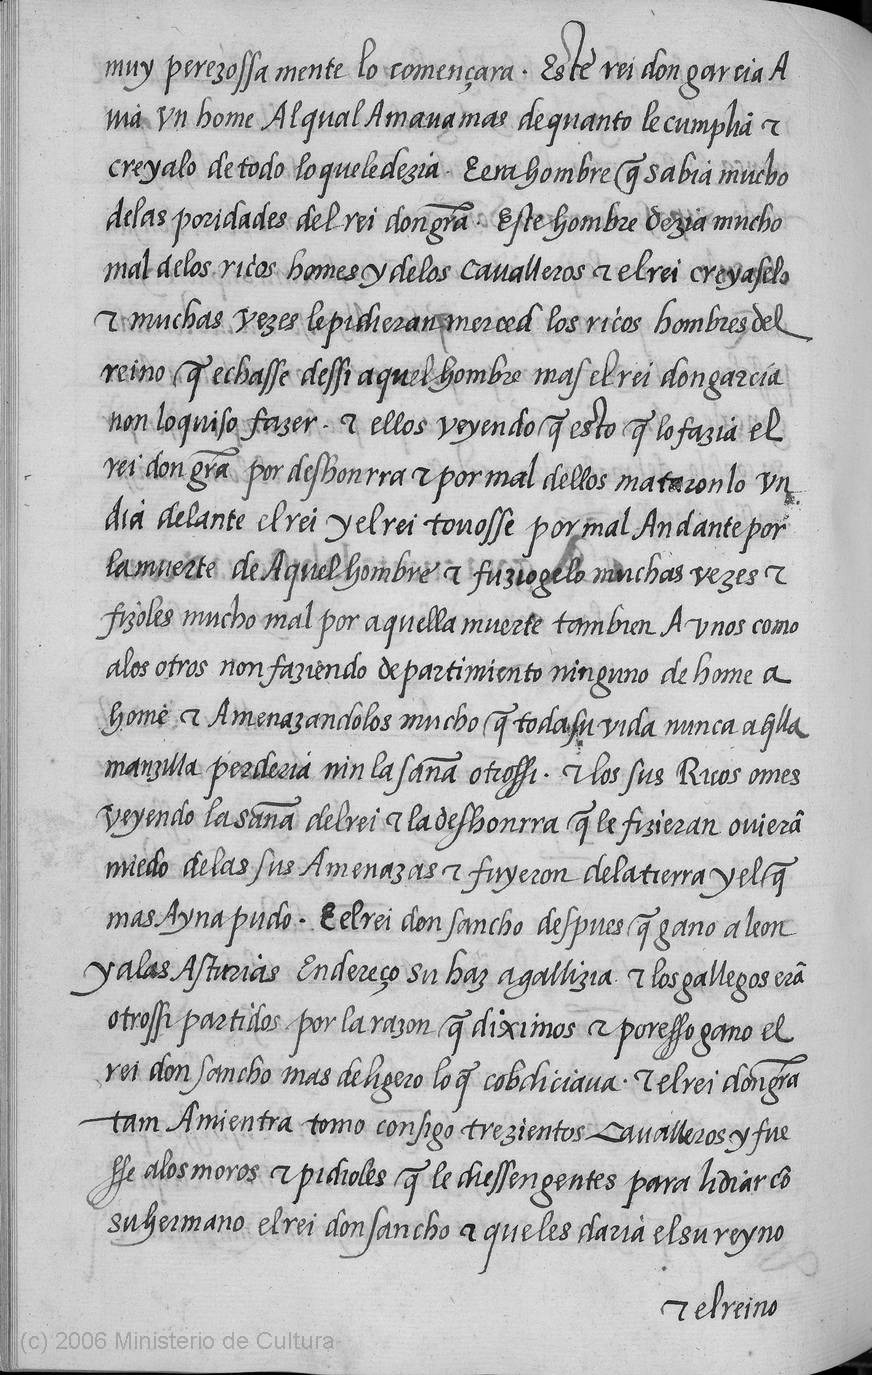 muy perezossa mente lo començara. Este rei don garcia A
uia Vn home Al qual Amaua mas de quanto le cumplia ⁊
creyalo de todo lo que le dezia. E era hombre q̃ sabia mucho
delas poridades del rei don gr̃a. Este hombre dezia mucho
mal delos ricos homes y delos cavalleros ⁊ el rei creyaselo
⁊ muchas vezes le pidieran merced los ricos hombres del
reino q̃ echasse dessi aquel hombre mas el rei don garcia
non lo quiso fazer. ⁊ ellos veyendo q̃ esto q̃ lo fazia el
rei don gr̃a por deshonrra ⁊ por mal dellos mataronlo vn
dia delante el rei y el rei touosse por mal Andante por
la muerte de Aquel hombre ⁊ fuziogelo muchas vezes ⁊
fizoles mucho mal por aquella muerte tambien A vnos como
alos otros non faziendo departimiento ninguno de home a
home ⁊ Amenazandolos mucho q̃ toda su vida nunca aq̃lla
manzilla perderia nin la saña otrossi. ⁊ los sus Ricos omes
veyendo la saña del rei ⁊ la deshonrra q̃ le fizieran ouierã
miedo delas sus Amenazas ⁊ fuyeron dela tierra y el q̃
mas Ayna pudo. E el rei don sancho despues q̃ gano a leon
y alas Asturias Endereço su haz a gallizia. ⁊ los gallegos erã
otrossi partidos por la razon q̃ diximos ⁊ poresso gano el
rei don sancho mas de ligero lo q̃ cobdiciaua. ⁊ el rei don gr̃a
tam Amientra tomo consigo trezientos Cavalleros y fue
sse alos moros ⁊ pidioles q̃ le diessen gentes para lidiar cõ
su hermano el rei don sancho ⁊ que les daria el su reyno
⁊ el reino
(c) 2006 Ministerio de Cultura